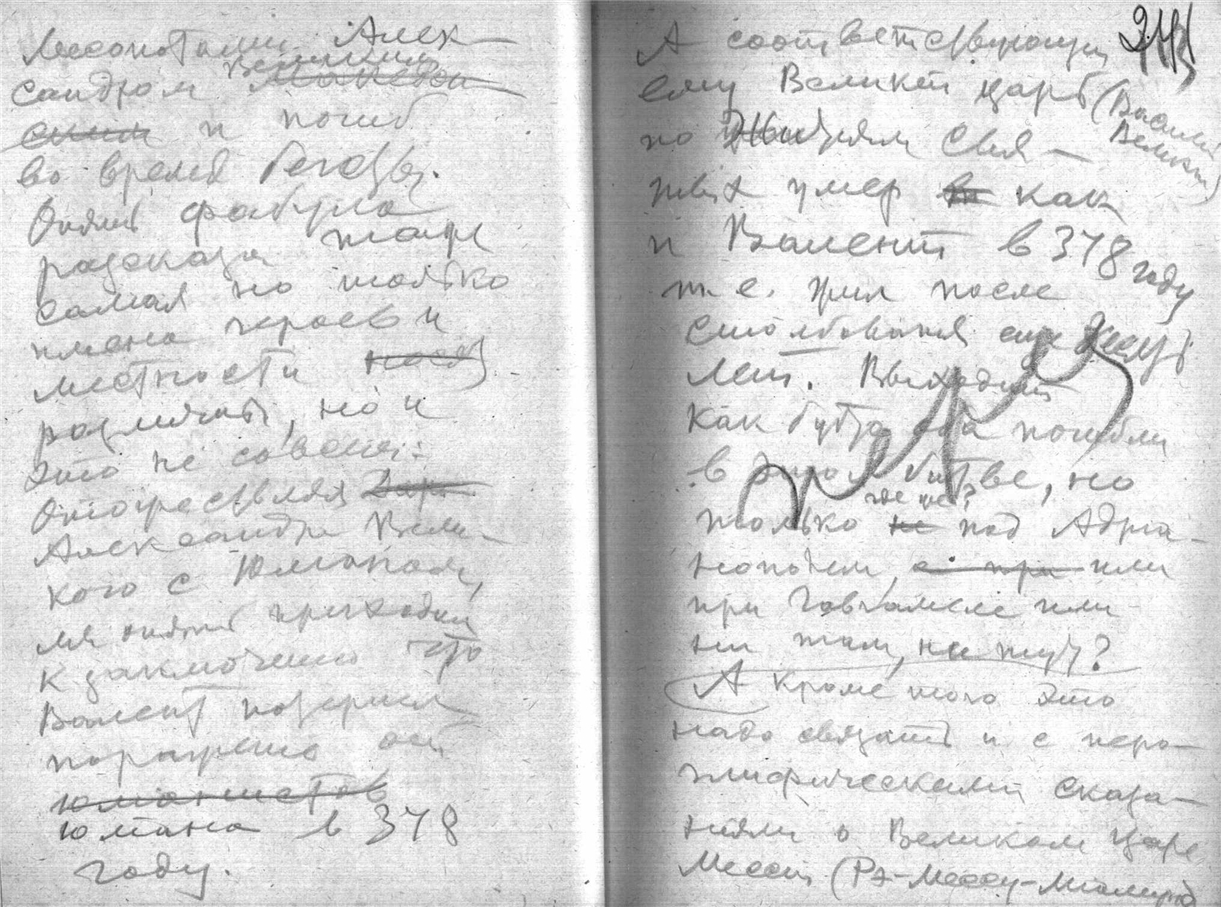 Месопотамии Алек-
сандром Великим Македон
ским и погиб
во время бегства.
Опять фабула
рассказа та же
самая но только
имена героев и
местности
различны, но и
это не совсем:
Отожествляя
Александра Вели-
кого с Юлианом,
мы опять приходим
к заключению что
Валент потерпел
поражение от
юлианистов
юлиана в 378
году.
А соответствующий
ему Великий царь (Василий
Великий)
по Житиям Свя-
тых умер как
и Валент в 378 году
т. е. жил после
лет. Выходит
как будто оба погибли
в этой битве, но
где же?
только не под Адриа-
нополем, или
при Гавгамеле или
ни там, ни тут?
А кроме того это
надо связать и с иеро-
глифическими сказа-
ниями о Великом царе
Месси (Рэ-Мессу-Миамун